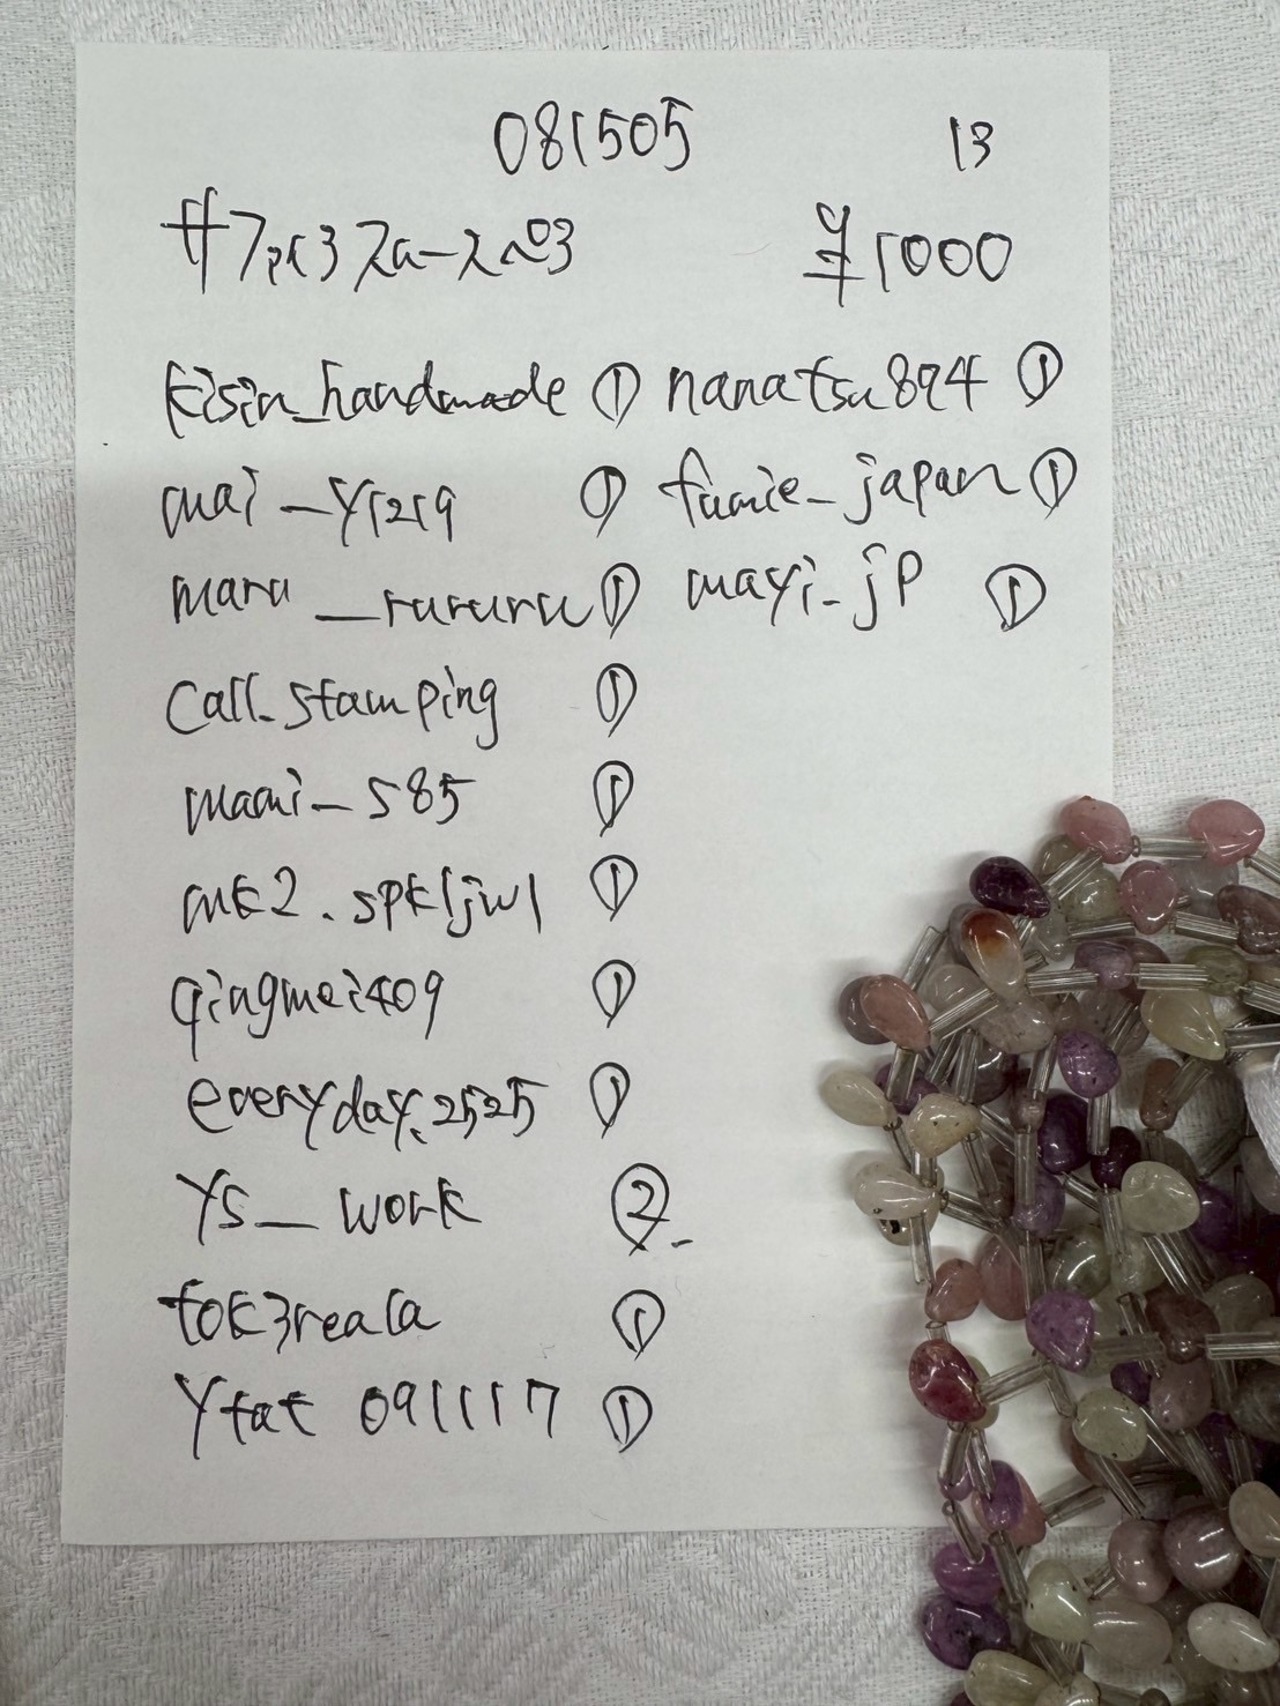 081505 13
¥1000
kisin_handmade ① nanatsu894 ①
mai_y1219 ① fumie_japan ①
maru__rururu ① mayi_jp ①
Call_stamping ①
maami_585 ①
mk2.spkljwl ①
qingmei409 ①
everyday.2525 ①
YS__work ②
tok3reala ①
Ytat 091117 ①